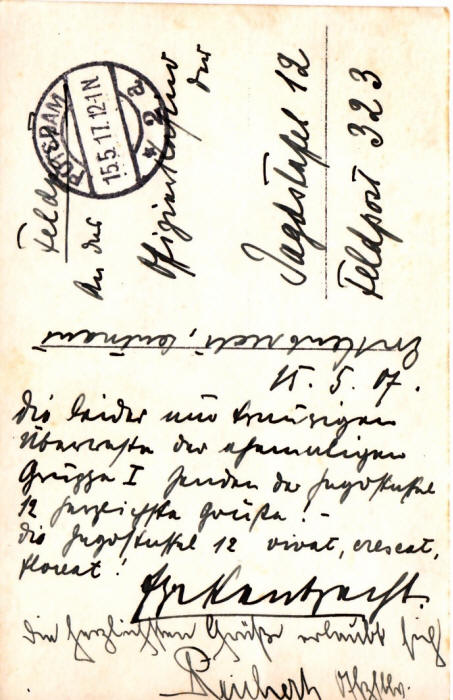 Feldpost
POTSDAM
15.5.17.12-1N
* 2 a.
An das
Offizierskasino
der
Jagdstaffel 12
Feldpost 323
15. 5. 17.
Die leider nur traurigen
Überreste der ehemaligen
Gruppe I senden der Jagdstaffel
12 herzlichste Grüße! –
Die Jagdstaffel 12 vivat, crescat,
floreat!
Die herzlichsten Grüße erlaubt sich
Reichert